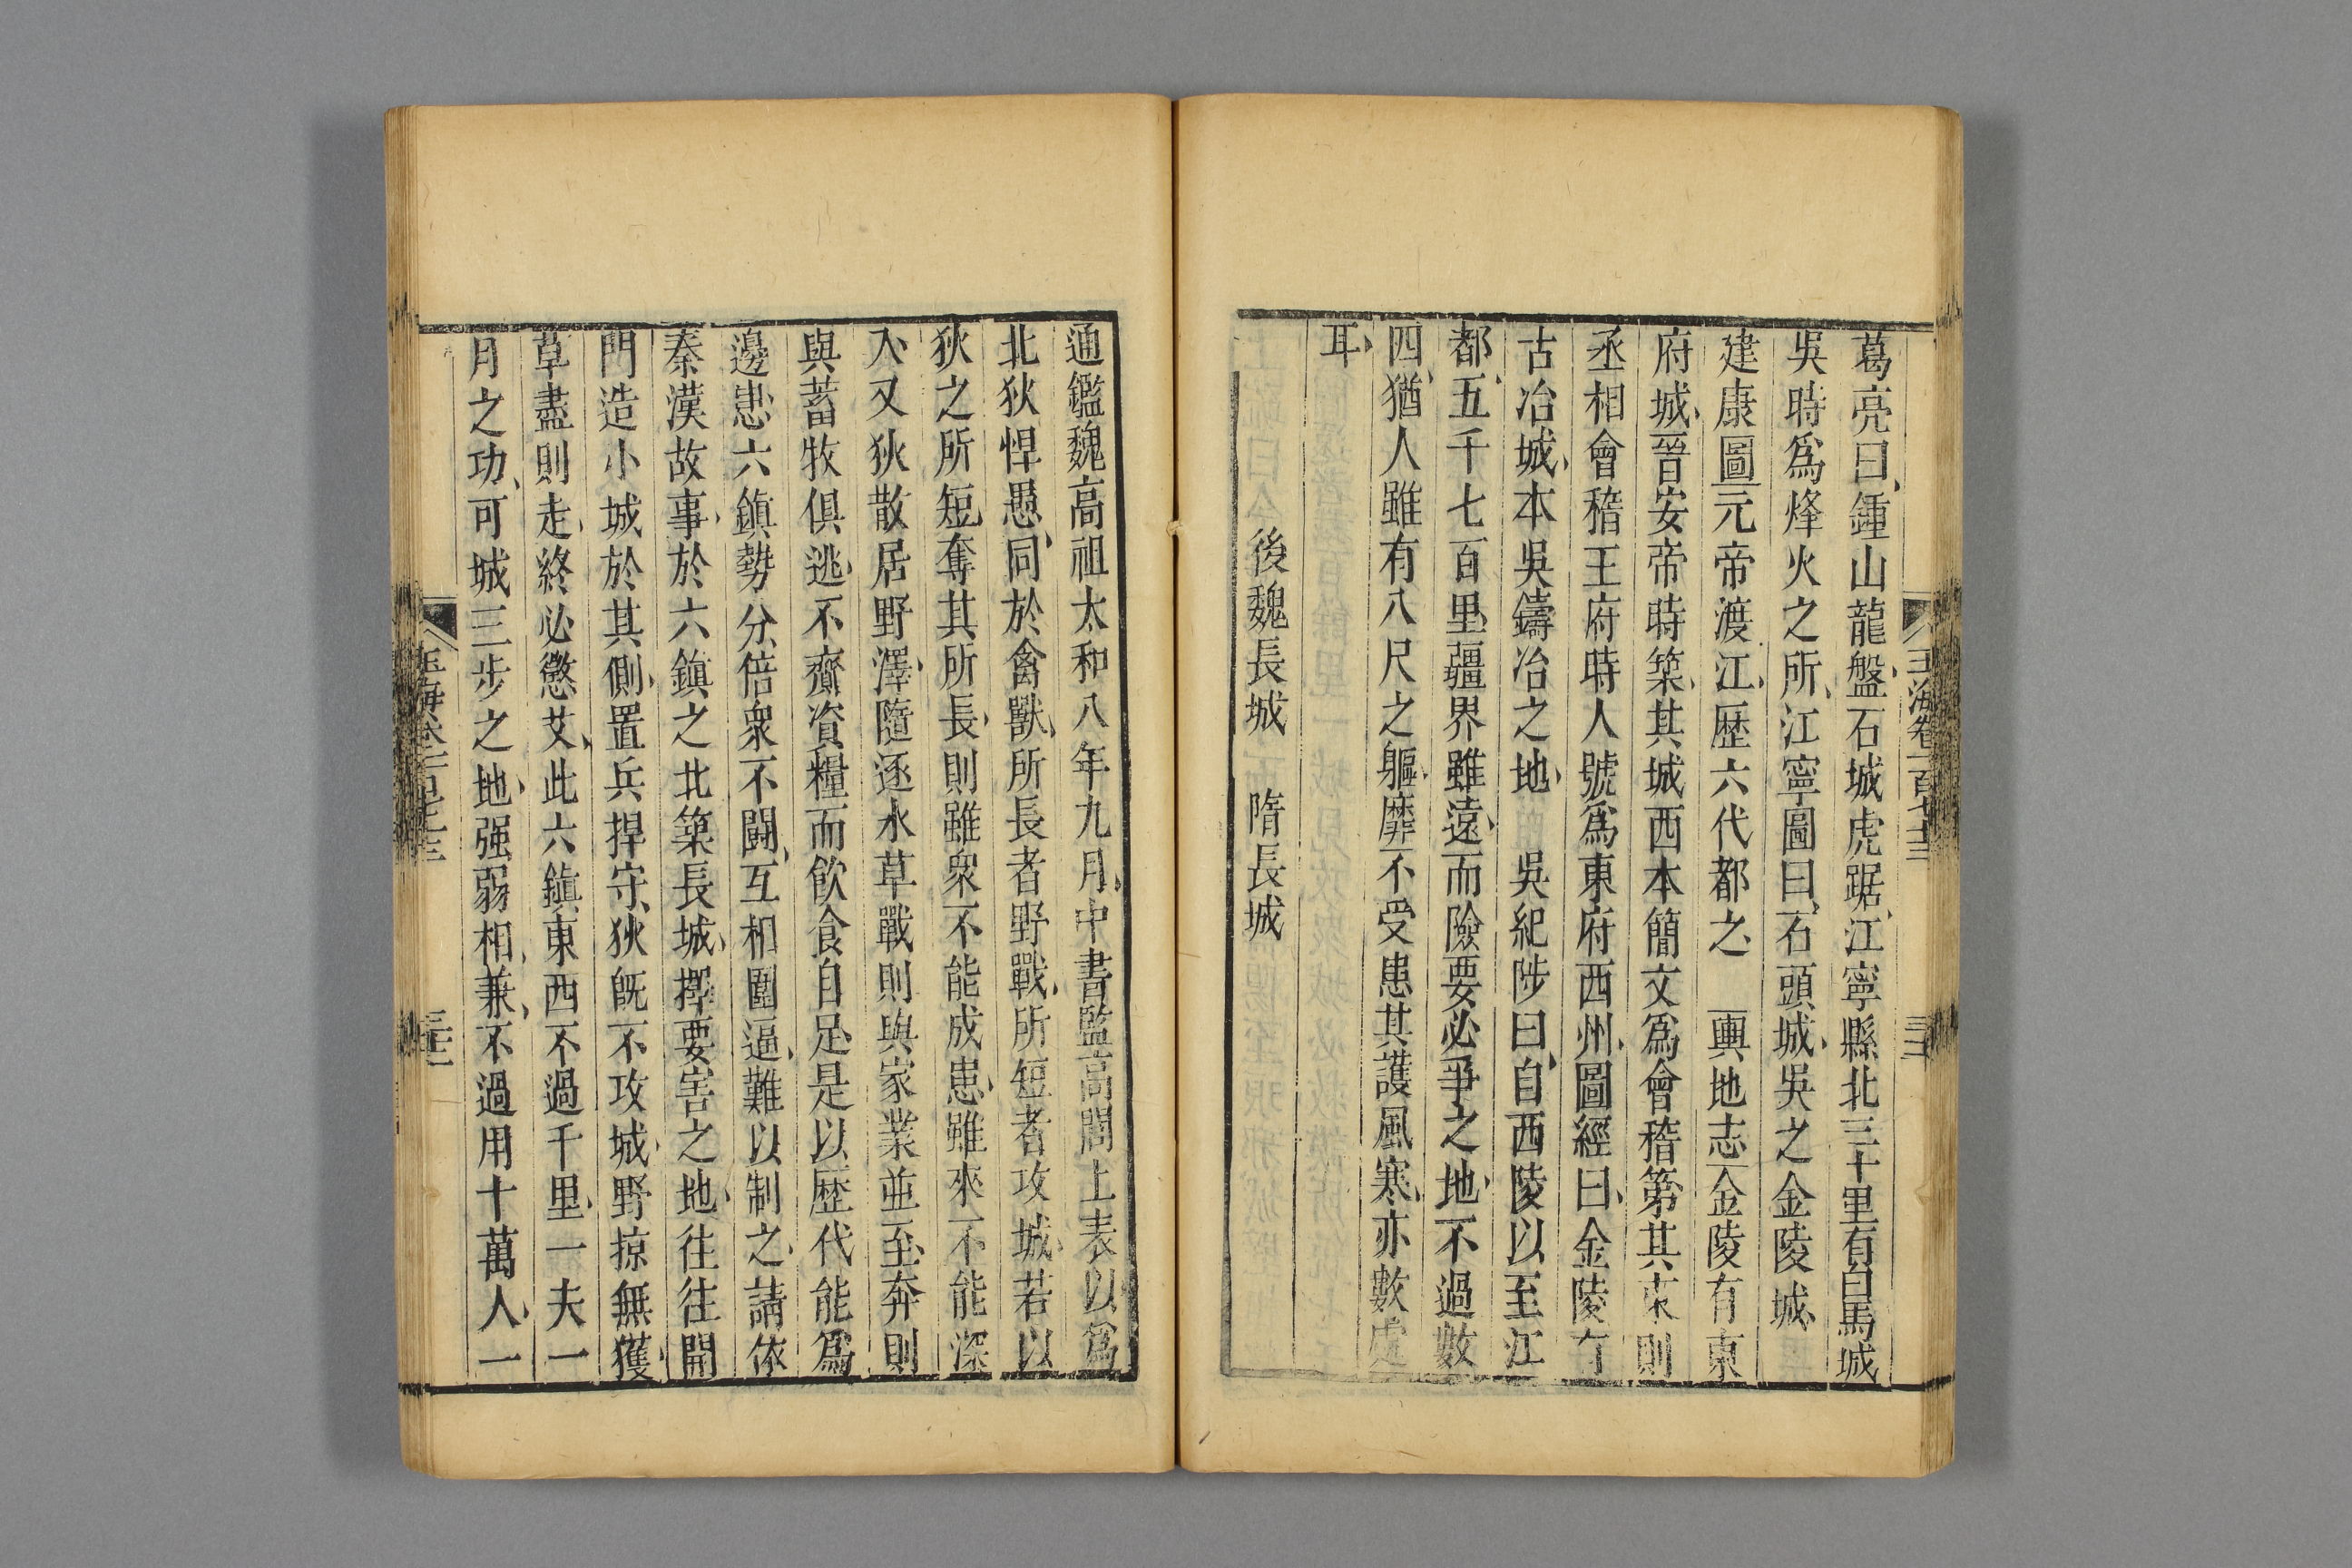 葛亮曰鍾山龍盤石城虎踞江寧縣北三十里有白馬城
吳時爲烽火之所江寧圖曰石頭城吳之金陵城
建康圖元帝渡江歷六代都之 輿地志金陵有東
府城晉安帝時築其城西本簡文爲會稽第其東則
丞相會稽王府時人號爲東府西州圖經曰金陵有
古冶城本吳鑄冶之地 吳紀陟曰自西陵以至江
都五千七百里疆界雖遠而險要必爭之地不過數
四猶人雖有八尺之軀靡不受患其護風寒亦數處
耳
後魏長城 隋長城
玉海卷一百七十三
通鑑魏高祖太和八年九月中書監高閭上表以爲
北狄悍愚同於禽獸所長者野戰所短者攻城若以
狄之所短奪其所長則雖衆不能成患雖來不能深
入又狄散居野澤隨逐水草戰則與家業並至奔則
與蓄牧俱逃不齎資糧而飲食自足是以歷代能爲
邊患六鎮勢分倍衆不鬬互相圍逼難以制之請依
秦漢故事於六鎮之北築長城擇要害之地往往開
門造小城於其側置兵捍守狄旣不攻城野掠無獲
草盡則走終必懲艾此六鎮東西不過千里一夫一
月之功可城三步之地强弱相兼不過用十萬人一
玉海卷一百七十三